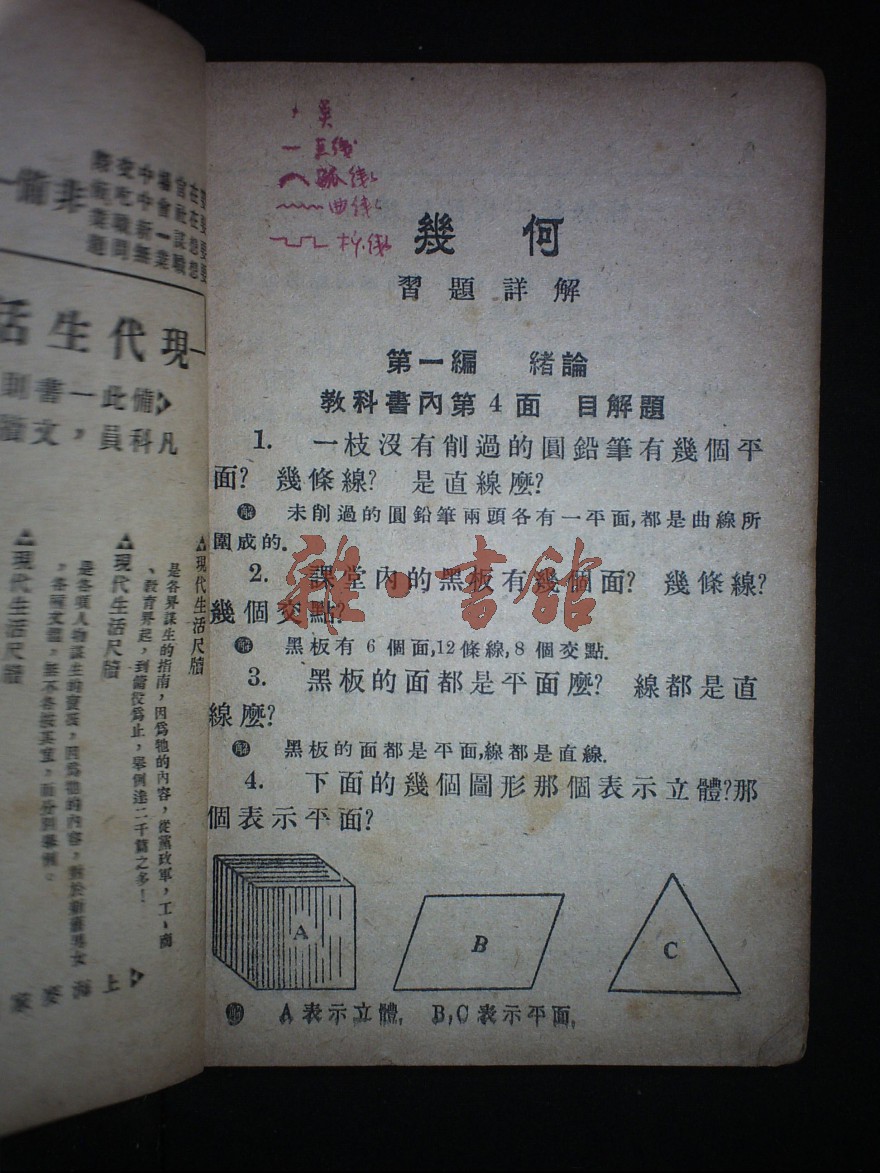 点
一 直线
弧线
曲线
折线
幾何
習題詳解
第一編 緒論
教科書內第4面 目解題
1. 一枝沒有削過的圓鉛筆有幾個平
面? 幾條線? 是直線麼?
解 未削過的圓鉛筆兩頭各有一平面,都是曲線所
圍成的.
2. 課堂內的黑板有幾個面? 幾條線?
幾個交點?
解 黑板有 6 個面,12條線,8 個交點.
3. 黑板的面都是平面麼? 線都是直
線麼?
解 黑板的面都是平面,線都是直線.
4. 下面的幾個圖形那個表示立體?那
個表示平面?
A
B
C
解 A表示立體, B,C表示平面.
雜·書館
現代生活
備此一書則
凡科員,文牘
▲現代生活尺牘
是各界謀生的指南,因爲牠的內容,從黨政軍,工、商
、教育界起,到僕役爲止,舉例達二千篇之多!
▲現代生活尺牘
▲現代生活尺牘
上海